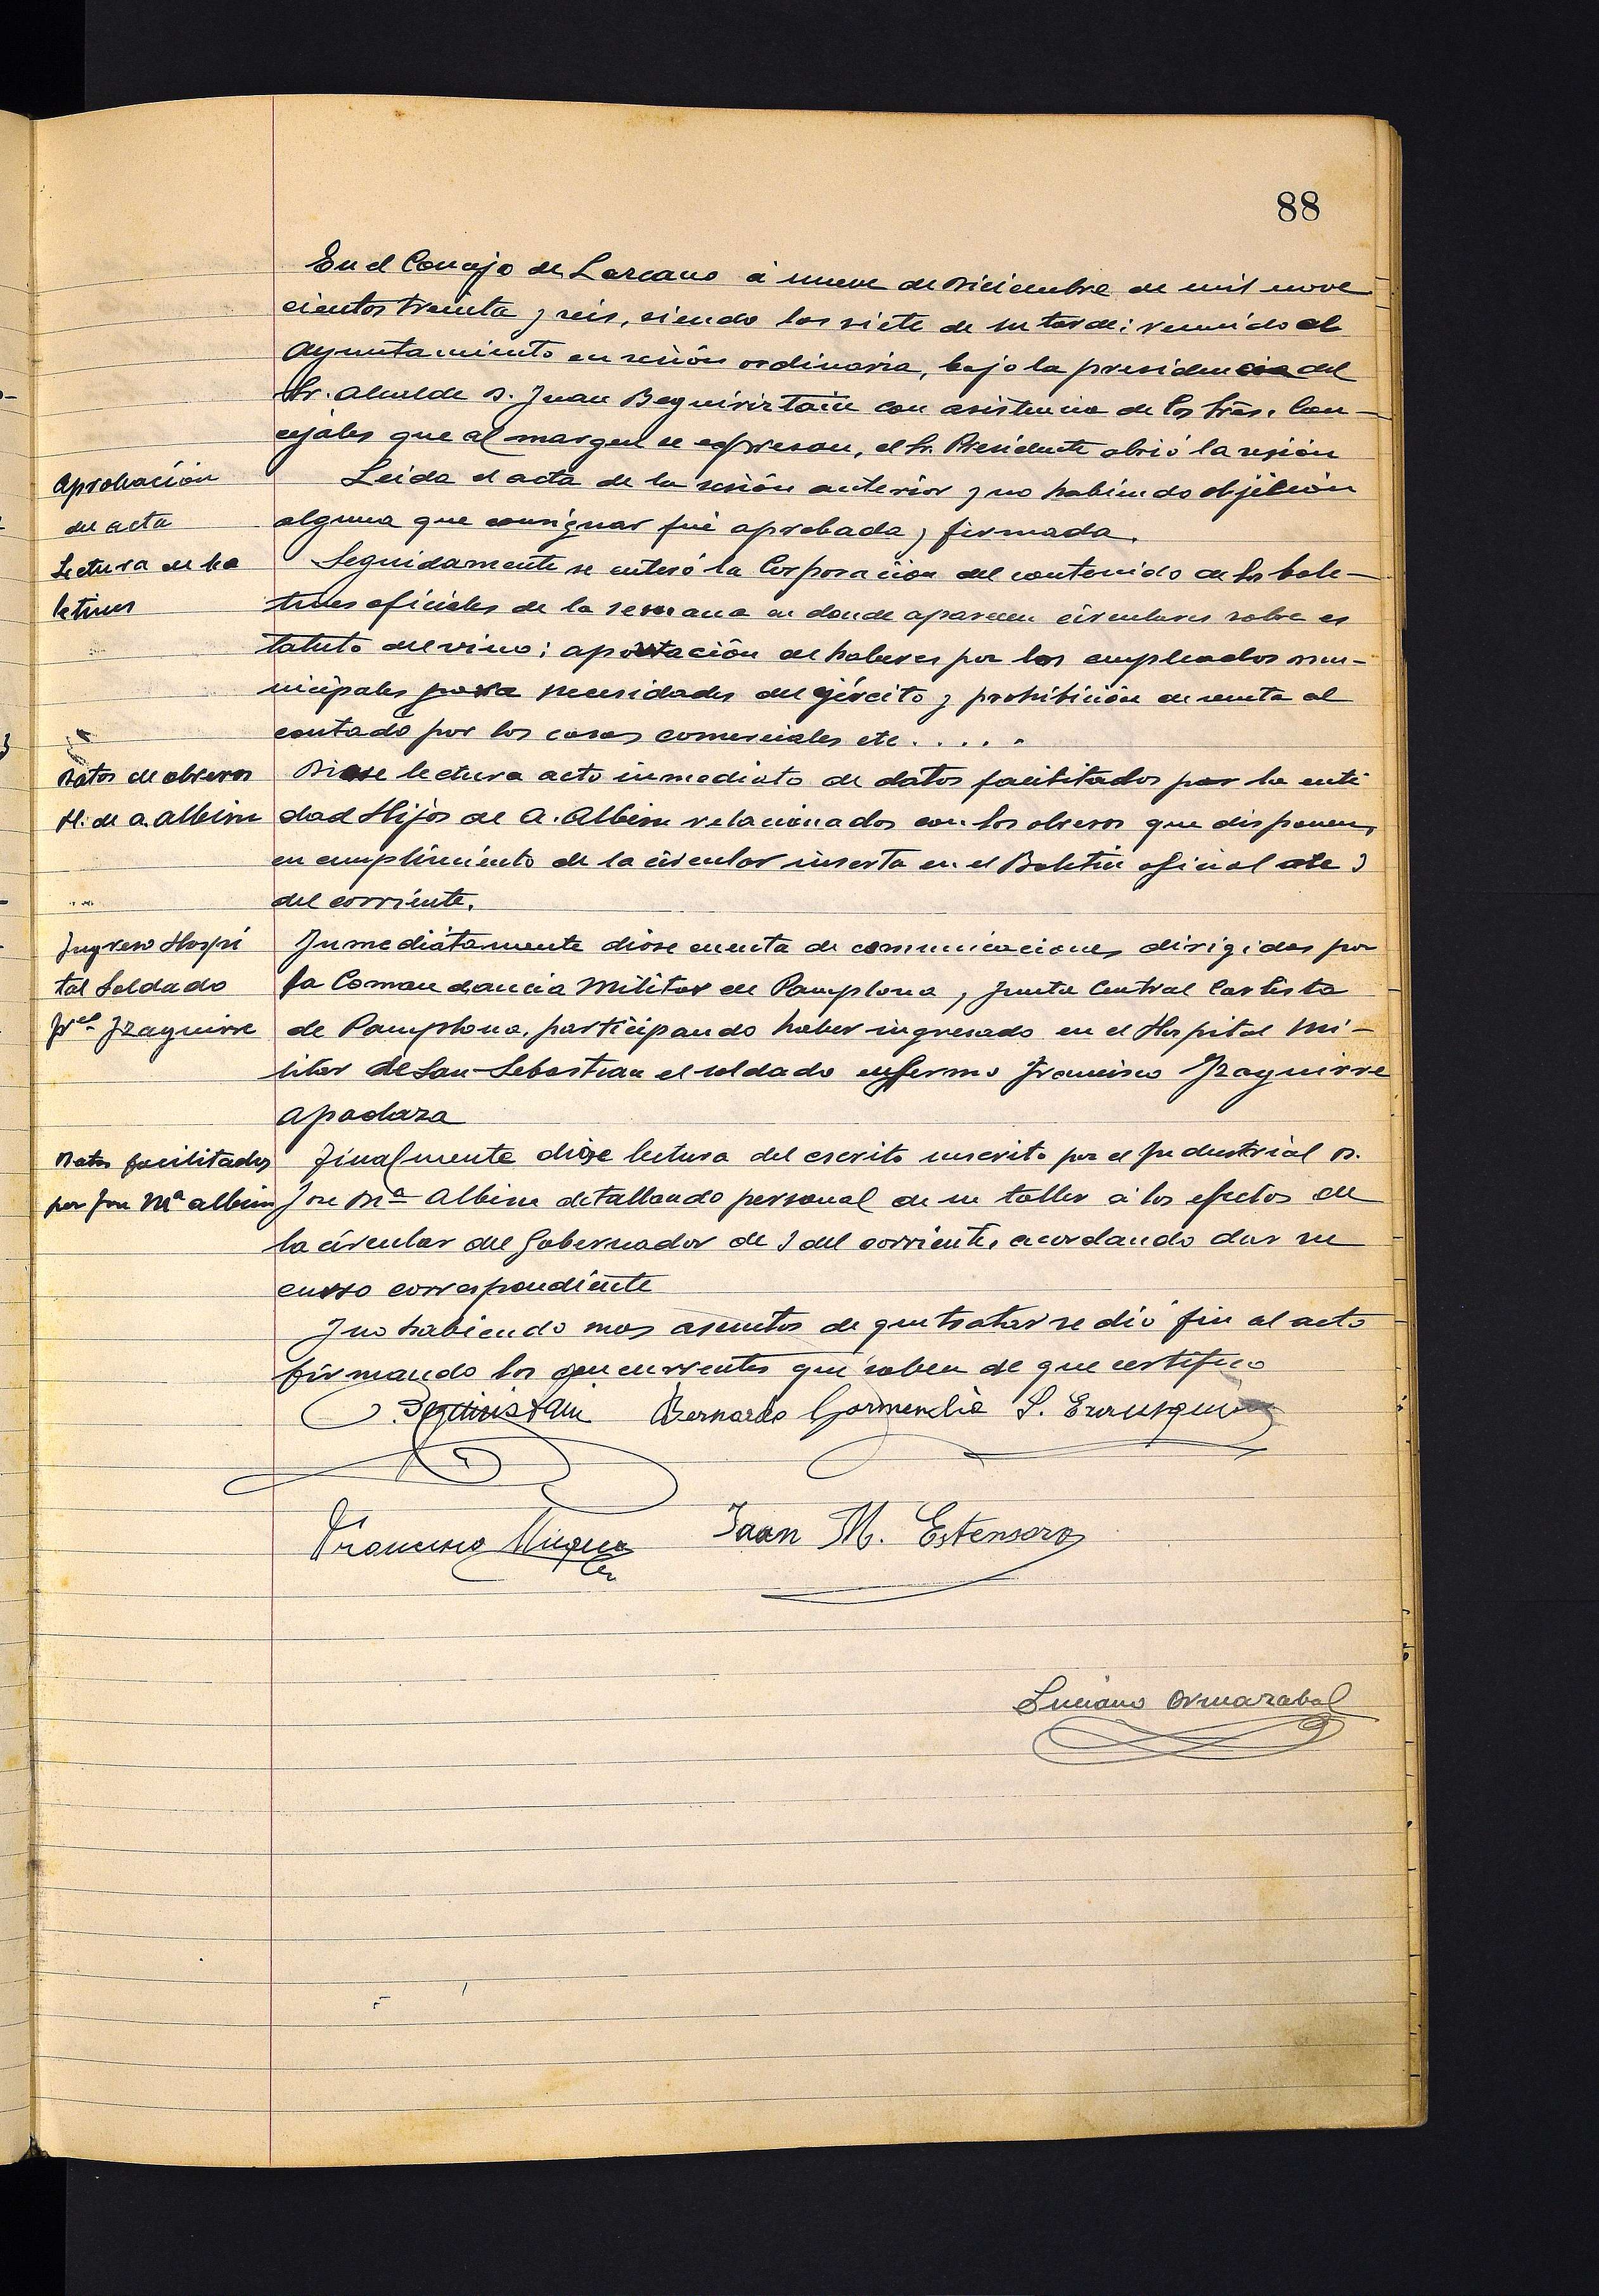 88
En el Concejo de Lazcano á nueve de Diciembre de mil nove
cientos treinta y seis, siendo las siete de su tarde: reunido el
Ayuntamiento en sesión ordinaria, bajo la presidencia del
Sr. Alcalde D. Juan Beguiristain con asistencia de los Sres. Con-
cejales que al margen se expresan, el Sr. Presidente abrió la sesión
Aprobación
del acta
Leida el acta de la sesión anterior y no habiendo objeción
alguna que consignar fué aprobada y firmada.
Lectura de bo
letines
Seguidamente se enteró la Corporación del contenido de los bole-
tines oficiales de la semana en donde aparecen circulares sobre es
tatuto del vino; aportación de haberes por los empleados mu-
nicipales para necesidades del ejército y prohibición de venta al
contado por los casas comerciales etc.....
Datos de obreros
H. de A. Albisu
Diose lectura acto inmediato de datos facilitados por la enti
dad Hijos de A. Albisu relacionados con los obreros que disponen,
en cumplimiento de la circular inserta en el Boletin oficial de 3
del corriente.
Ingreso Hospi
tal Soldado
Frco. Izaguirre
Inmediatamente dióse cuenta de comunicaciones dirigidas por
la Comandancia Militar de Pamplona y Junta Central Carlista
de Pamplona, participando haber ingresado en el Hospital Mi-
litar de San Sebastian el soldado enfermo Francisco Izaguirre
Apodaza
Datos facilitados
por Jose Mª Albisu
Finalmente dióse lectura del escrito suscrito por el Industrial D.
Jose Mª Albisu detallando personal de su taller á los efectos de
la circular del Gobernador de 3 del corriente, acordando dar su
curso correspondiente
Y no habiendo mas asuntos de que tratar se dió fin al acto
firmando los concurrentes que saben de que certifico
Beguiristain Bernardo Garmendia S. Erausquin
Francisco Juan M. Estensoro
Luciano Ormazabal